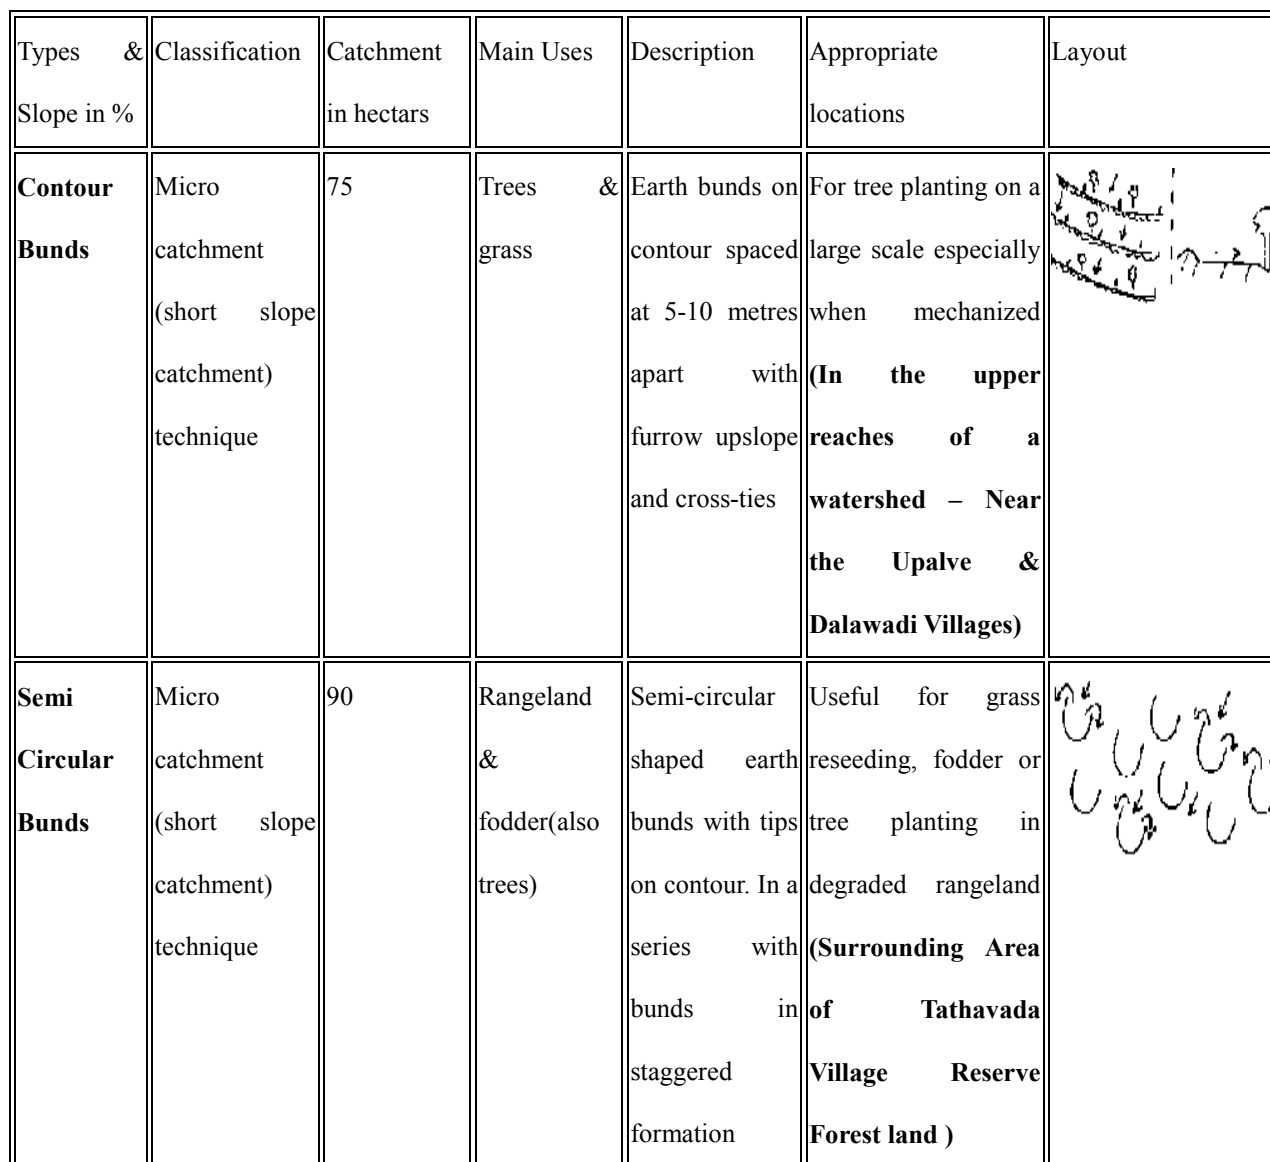 Types & Slope in %
Classification
Catchment in hectars
Main Uses
Description
Appropriate locations
Layout
Contour
Bunds
Micro
catchment
(short slope
catchment)
technique
75
Trees &
grass
Earth bunds on
contour spaced
at 5-10 metres
apart with
furrow upslope
and cross-ties
For tree planting on a
large scale especially
when mechanized
(In the upper
reaches of a
watershed – Near
the Upalve &
Dalawadi Villages)
Semi
Circular
Bunds
Micro
catchment
(short slope
catchment)
technique
90
Rangeland
&
fodder(also
trees)
Semi-circular
shaped earth
bunds with tips
on contour. In a
series with
bunds in
staggered
formation
Useful for grass
reseeding, fodder or
tree planting in
degraded rangeland
(Surrounding Area
of Tathavada
Village Reserve
Forest land )